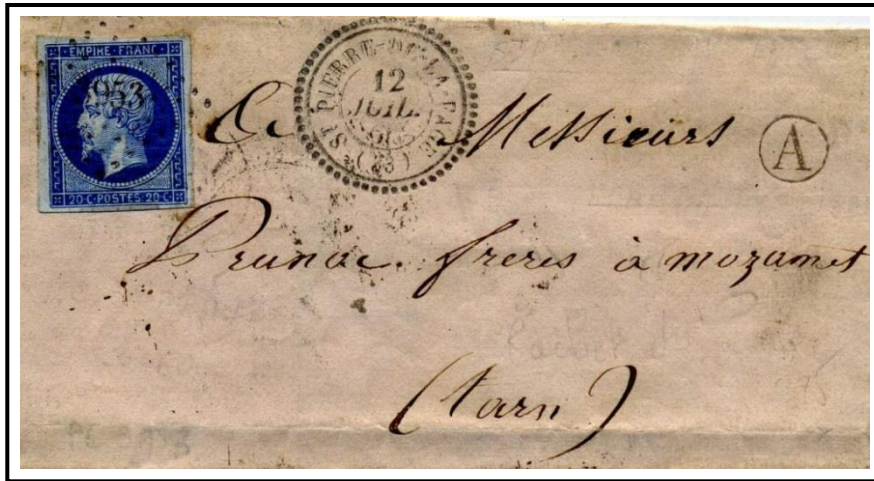 EMPIRE FRANC
953
20 C POSTES 20 C
ST PIERRE-DE-LA-FAGE
12
JUIL.
(33)
A
Messieurs
Prunac freres à mozamet
(tarn)